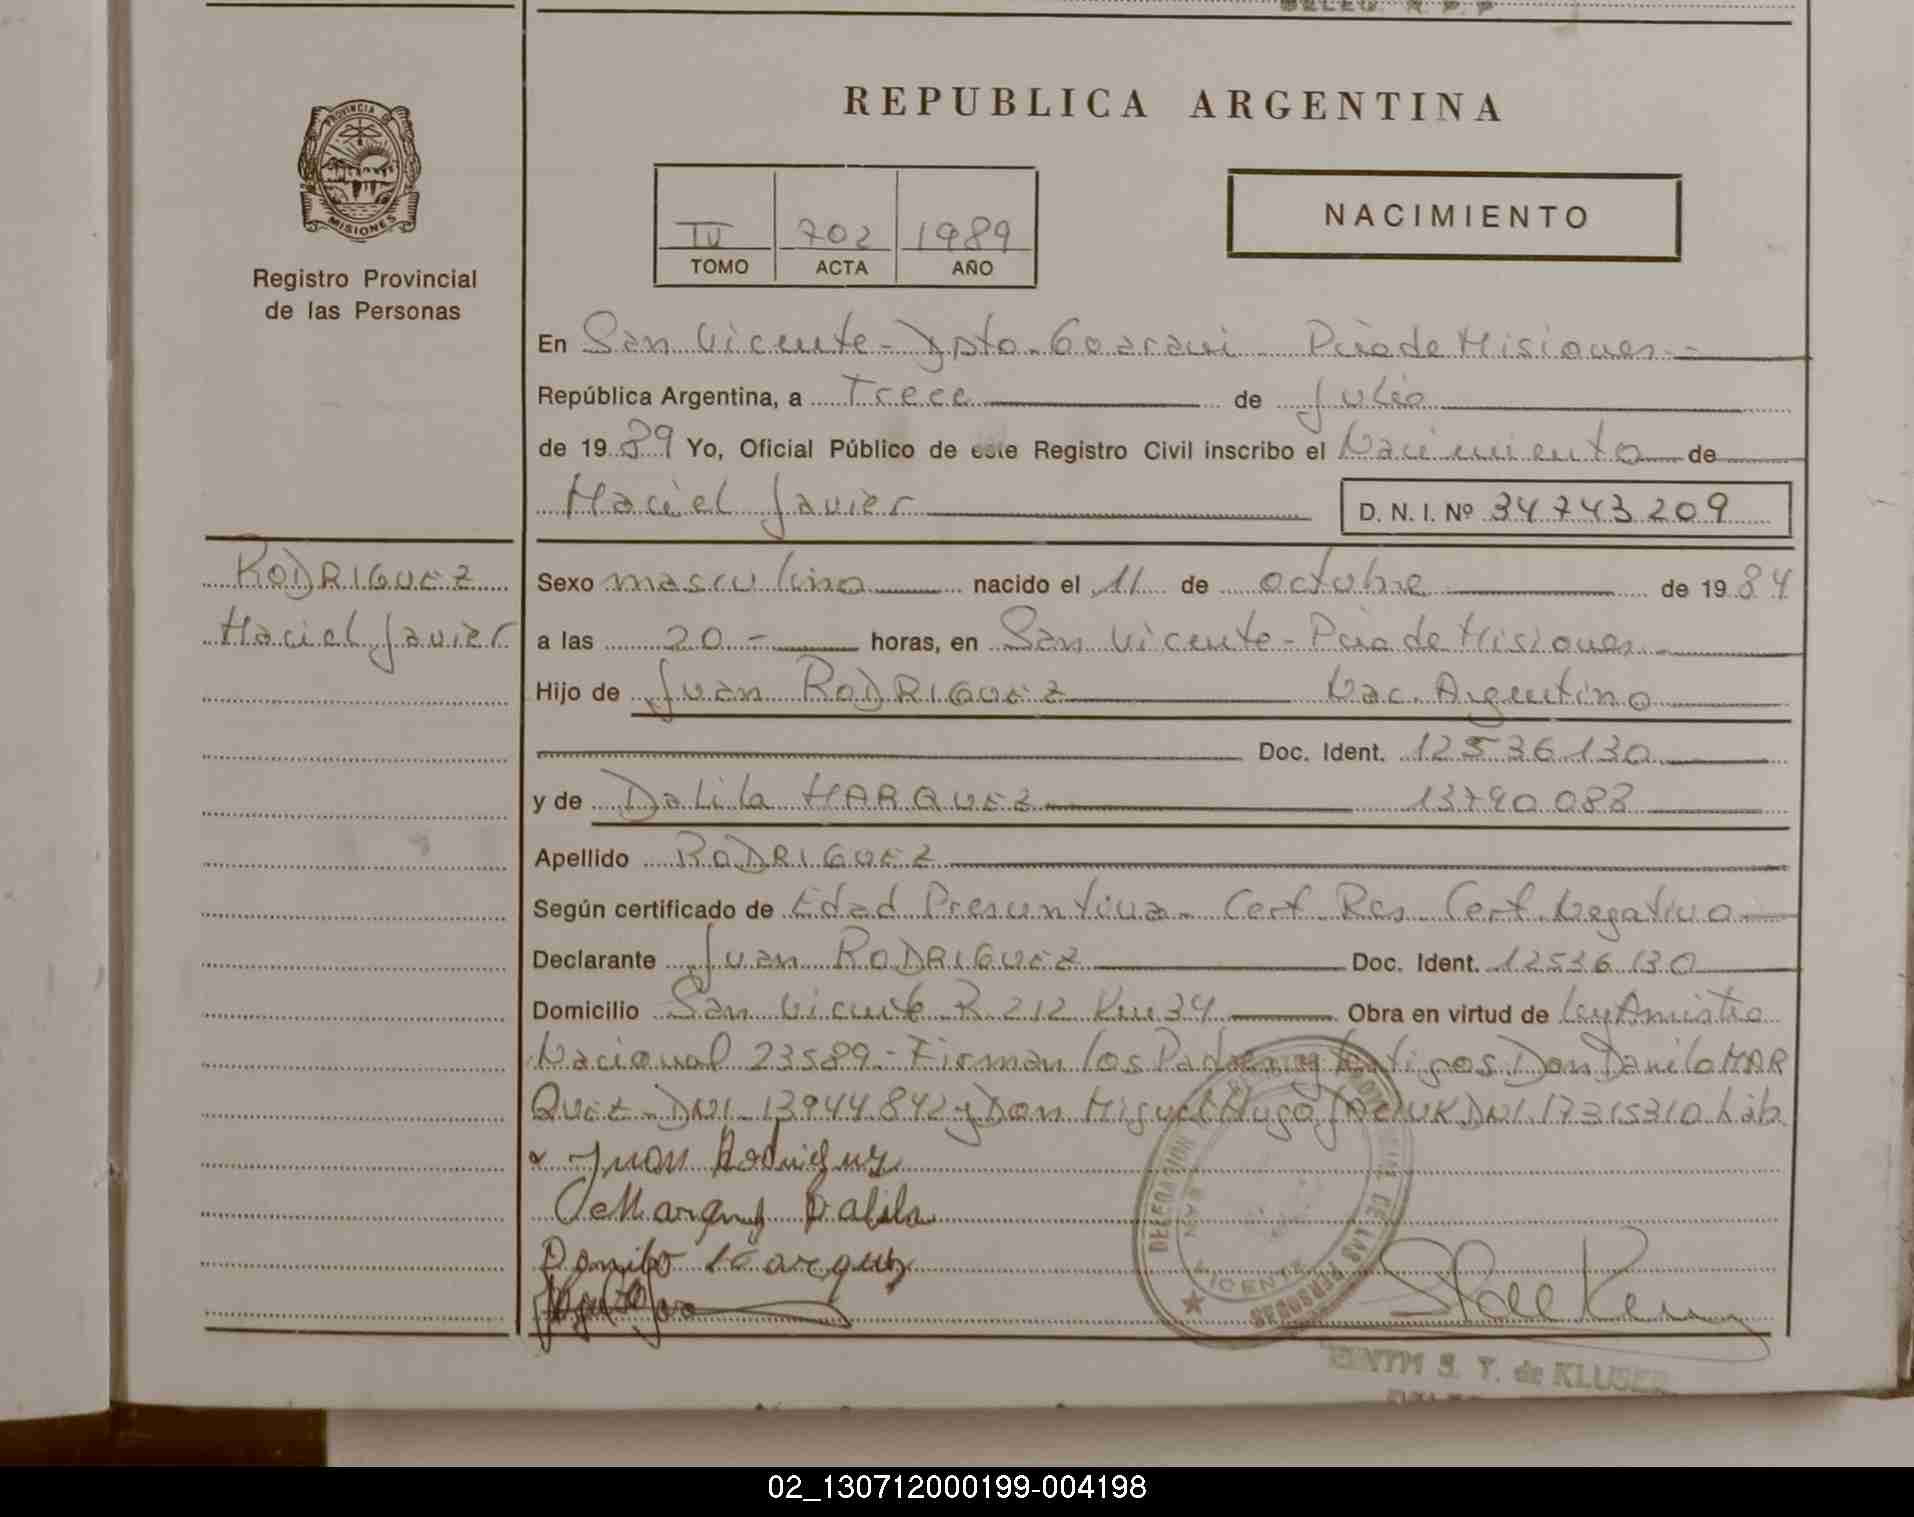 REPUBLICA ARGENTINA
PROVINCIA DE
MISIONES
Registro Provincial
de las Personas
IV 702 1989
TOMO ACTA AÑO
NACIMIENTO
En San Vicente - Dpto. Guarani Pcia de Misiones -
República Argentina, a Trece de Julio
de 1989 Yo, Oficial Público de este Registro Civil inscribo el Nacimiento de
Maciel Javier D. N. I. Nº 34743209
RODRIGUEZ
Maciel Javier
Sexo masculino nacido el 11 de octubre de 1984
a las 20 - horas, en San Vicente - Pcia de Misiones
Hijo de Juan RODRIGUEZ Nac. Argentino
Doc. Ident. 12536130
y de Dalila MARQUEZ 13790088
Apellido RODRIGUEZ
Según certificado de Edad Presuntiva - Cert. Res. Cert. Negativo
Declarante Juan RODRIGUEZ Doc. Ident. 12536130
Domicilio San Vicente R. 212 Km 34 Obra en virtud de Ley Amistia
Nacional 23589 - Firman los Padres y testigos Don Danilo MAR
QUEZ - DNI - 13944842 y Don Miguel Hugo DNI 17315310
Juan Rodriguez
Marquez Dalila
Danilo Marquez
DELEGACION
VICENTE
DE LAS PERSONAS
S. T. de KLUSER
02_130712000199-004198